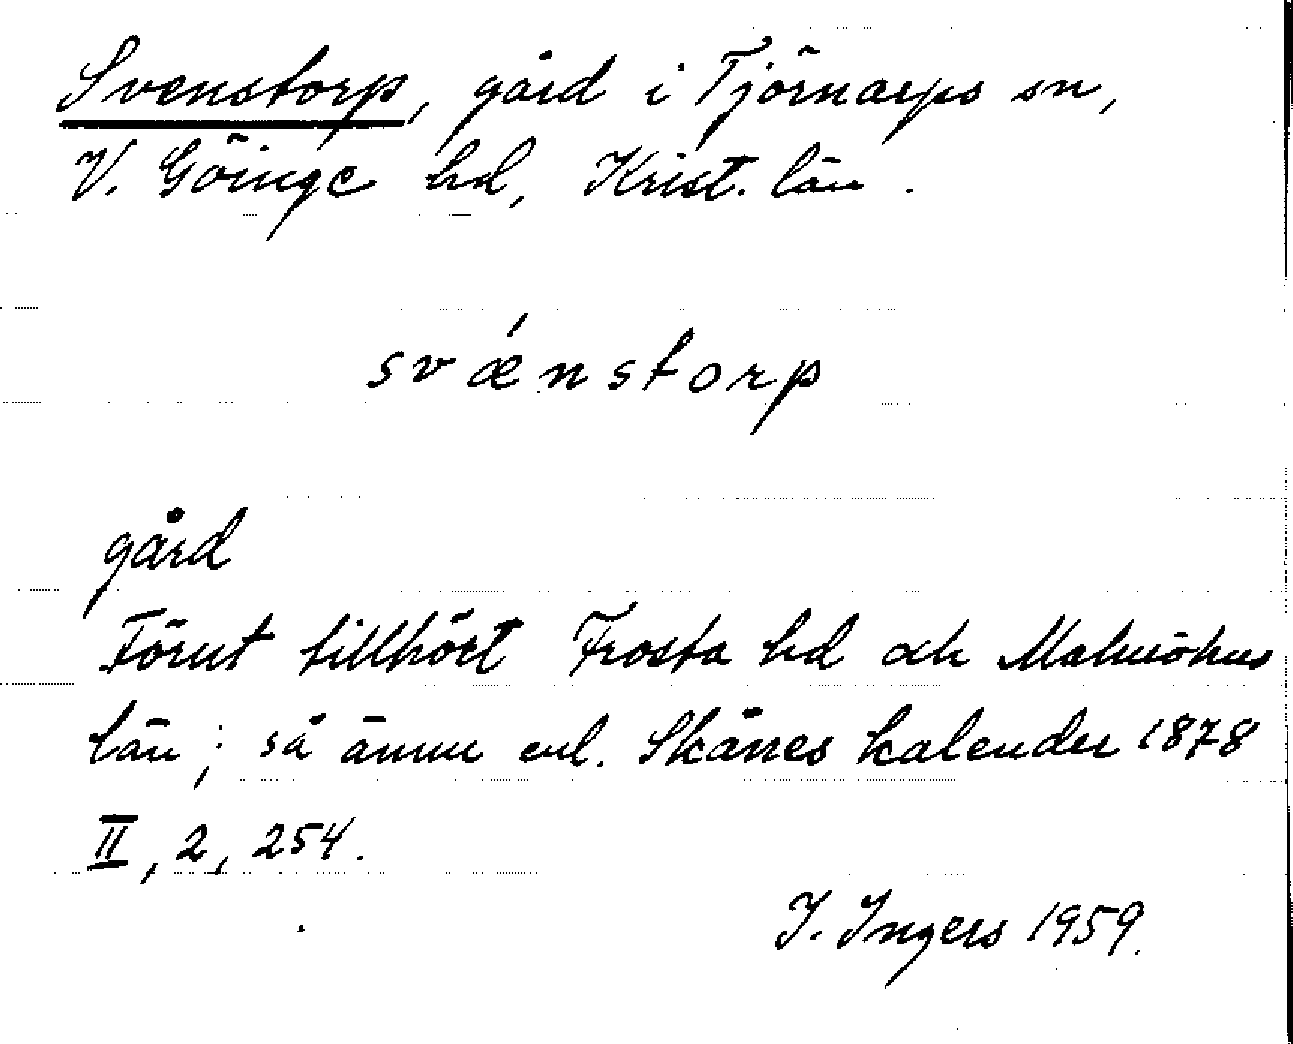 Svenstorp, gård i Tjörnarps sn,
V. Göinge hd, Krist. län.
svǽnstorp
gård
Förut tillhört Frosta hd och Malmöhus
län; så ännu enl. Skånes kalender 1878
II, 2, 254.
I. Ingers 1959.